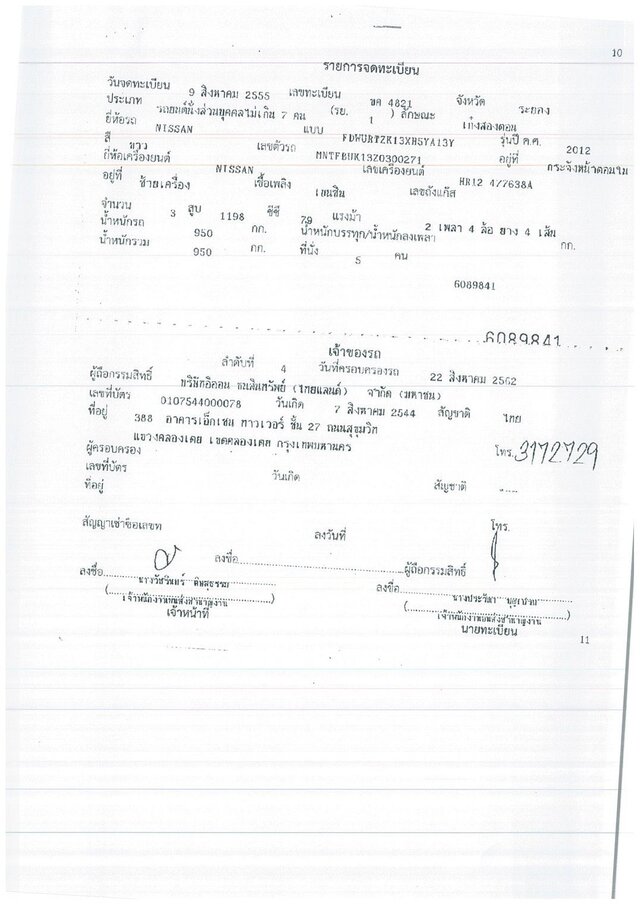 10
รายการจดทะเบียน
วันจดทะเบียน 9 สิงหาคม 2555 เลขทะเบียน ขค 4821 จังหวัด ระยอง
ประเภท รถยนต์นั่งส่วนบุคคลไม่เกิน 7 คน (รย. 1 ) ลักษณะ เก๋งสองตอน
ยี่ห้อรถ NISSAN แบบ FDWURTZK13XHSYA13Y รุ่นปี ค.ศ. 2012
สี ขาว เลขตัวรถ MNTFBUK13Z0300271 อยู่ที่ กระจังหน้าตอนใน
ยี่ห้อเครื่องยนต์ NISSAN เลขเครื่องยนต์ HR12 477638A
อยู่ที่ ซ้ายเครื่อง เชื้อเพลิง เบนซิน เลขถังแก๊ส
จำนวน 3 สูบ 1198 ซีซี 79 แรงม้า 2 เพลา 4 ล้อ ยาง 4 เส้น
น้ำหนักรถ 950 กก. น้ำหนักบรรทุก/น้ำหนักลงเพลา กก.
น้ำหนักรวม 950 กก. ที่นั่ง 5 คน
6089841
6089841
เจ้าของรถ
ลำดับที่ 4 วันที่ครอบครองรถ 22 สิงหาคม 2562
ผู้ถือกรรมสิทธิ์ บริษัทอิออน ธนสินทรัพย์ (ไทยแลนด์) จำกัด (มหาชน)
เลขที่บัตร 0107544000078 วันเกิด 7 สิงหาคม 2544 สัญชาติ ไทย
ที่อยู่ 388 อาคารเอ็กเชน ทาวเวอร์ ชั้น 27 ถนนสุขุมวิท
แขวงคลองเตย เขตคลองเตย กรุงเทพมหานคร โทร. 3172729
ผู้ครอบครอง
เลขที่บัตร วันเกิด สัญชาติ
ที่อยู่
โทร.
สัญญาเช่าซื้อเลขที่ ลงวันที่
ลงชื่อ ผู้ถือกรรมสิทธิ์
ลงชื่อ ลงชื่อ
เจ้าหน้าที่ นายทะเบียน
11